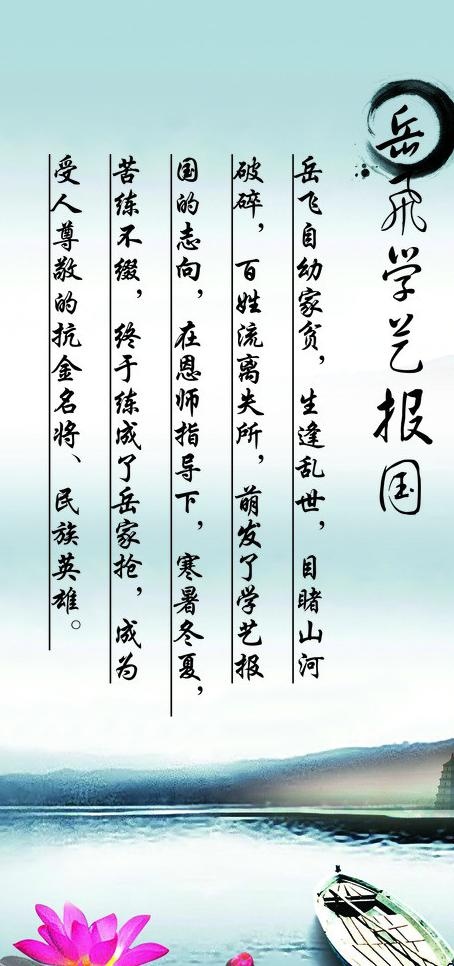 岳飞学艺报国
岳飞自幼家贫，生逢乱世，目睹山河
破碎，百姓流离失所，萌发了学艺报
国的志向，在恩师指导下，寒暑冬夏，
苦练不缀，终于练成了岳家抢，成为
受人尊敬的抗金名将、民族英雄。